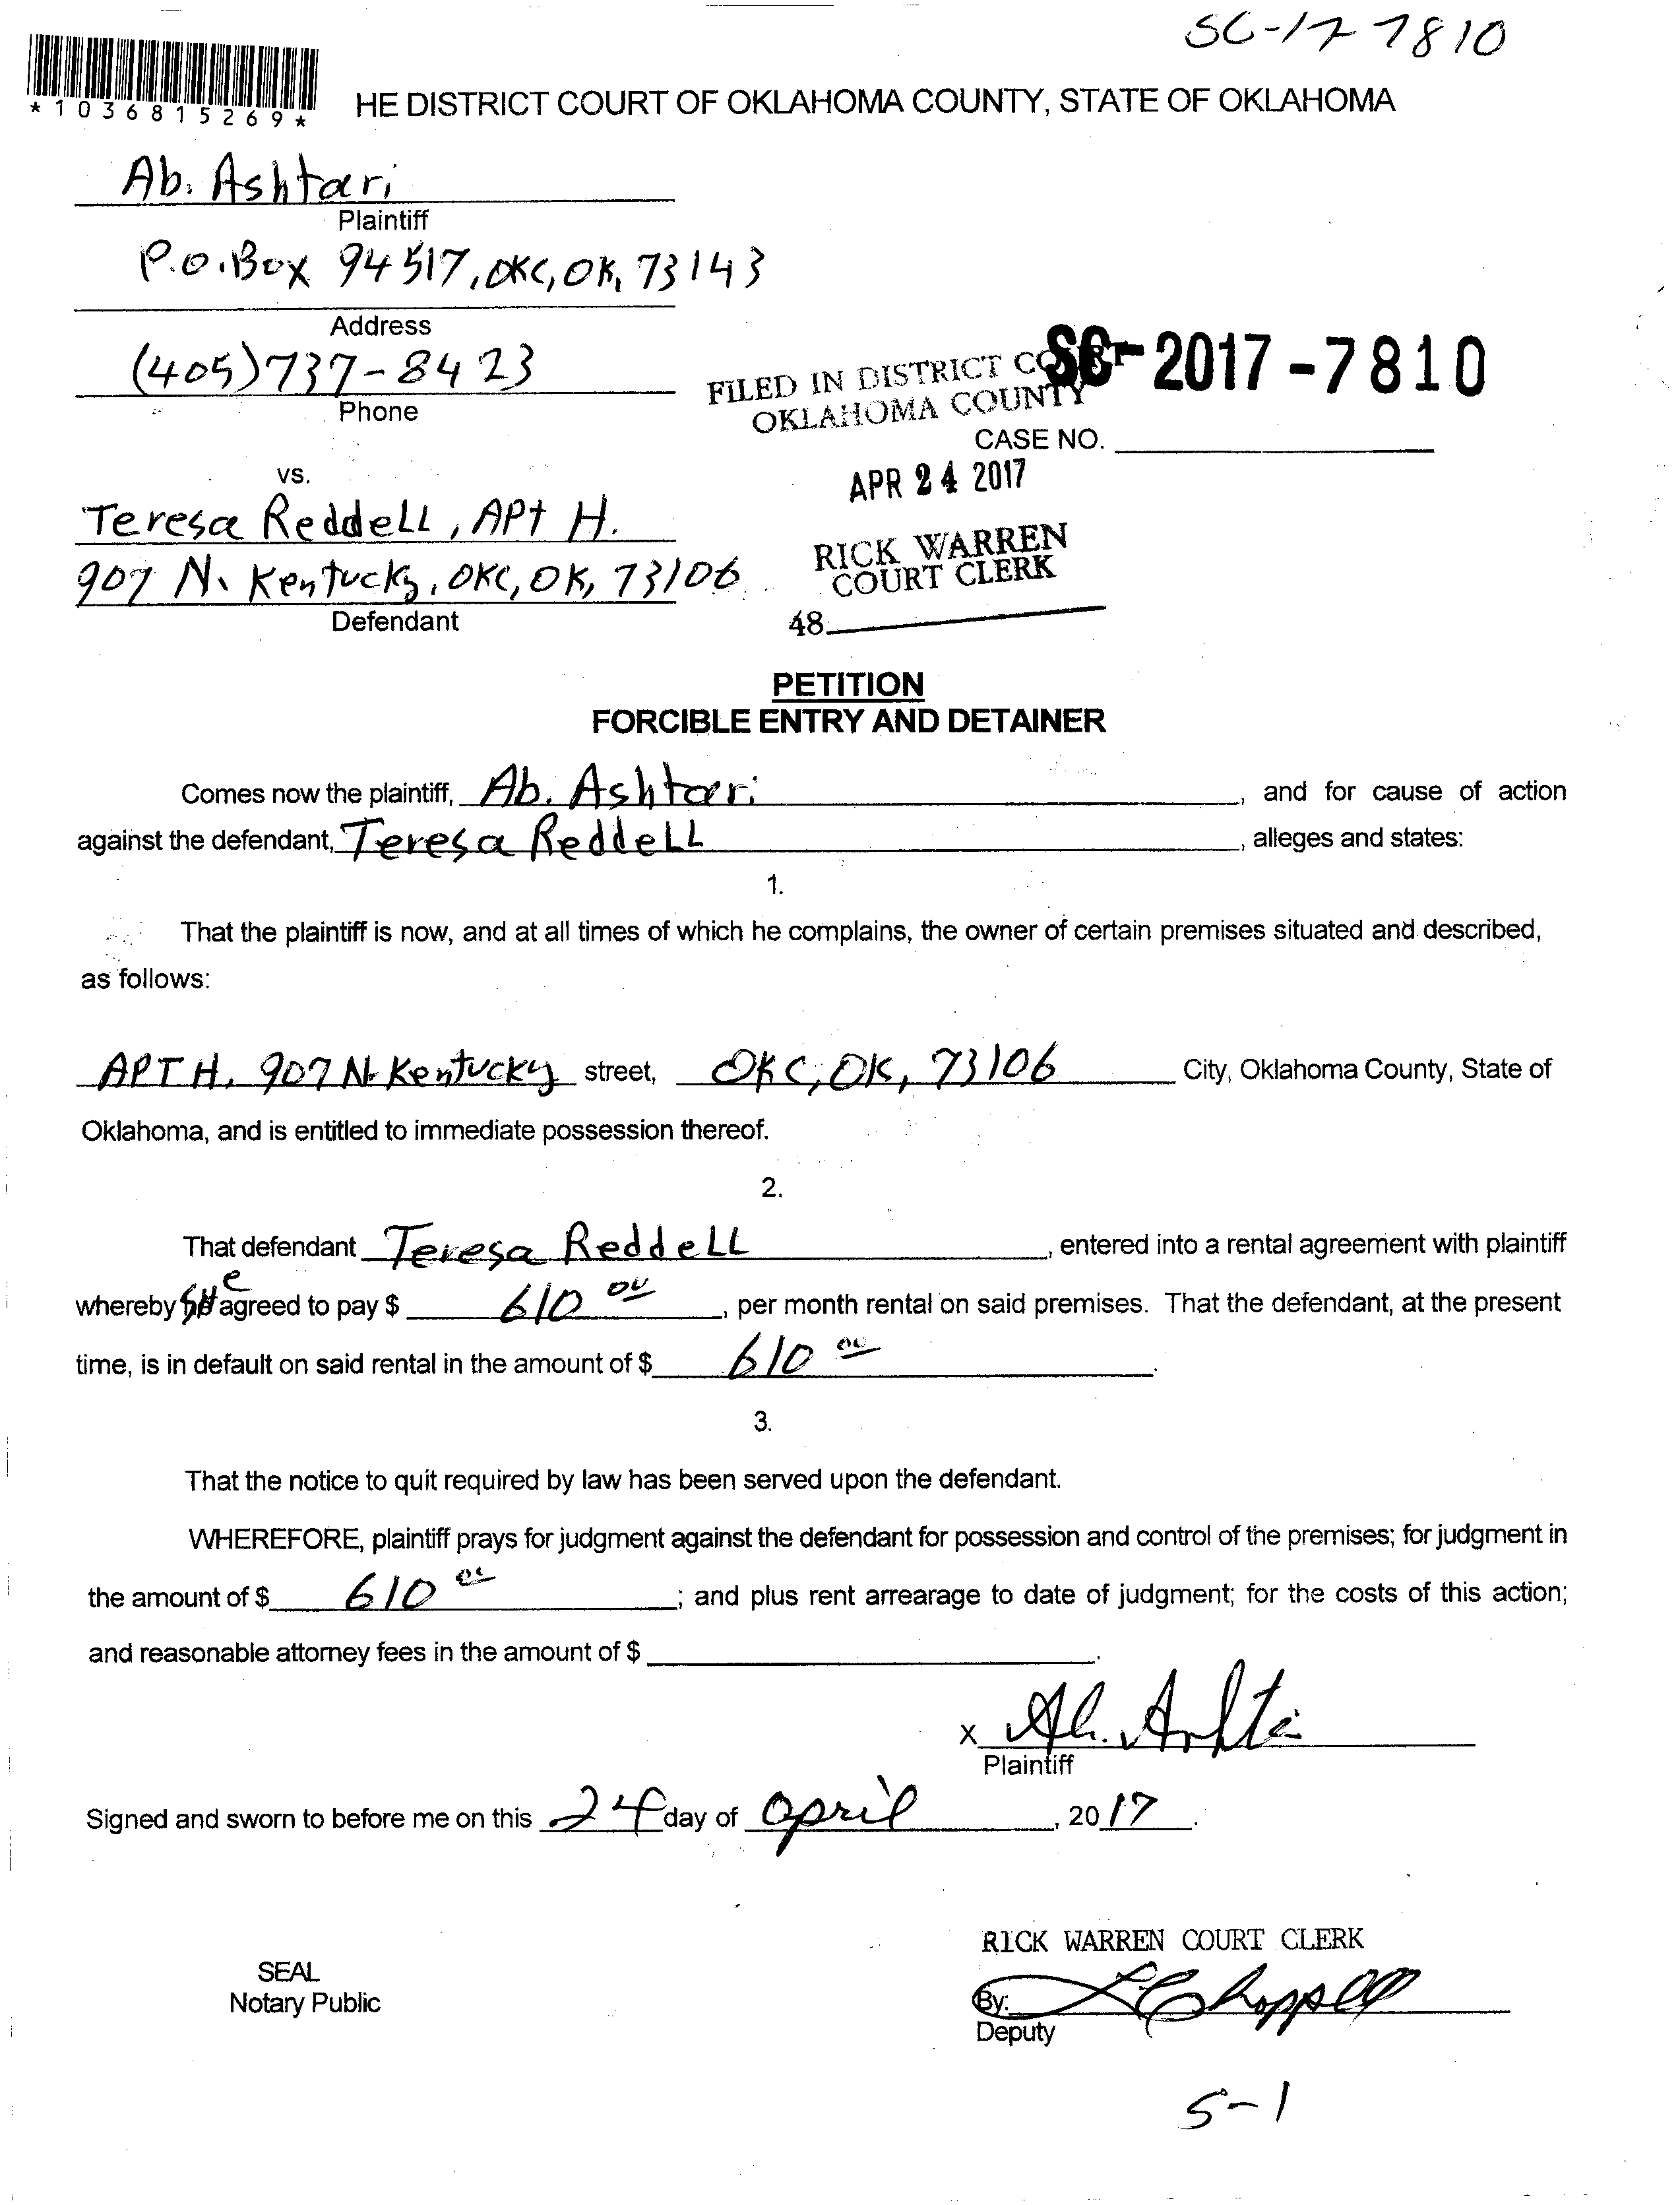 SC-17 7810
*1036815269*
HE DISTRICT COURT OF OKLAHOMA COUNTY, STATE OF OKLAHOMA
Ab. Ashtari
Plaintiff
P.O.Box 94517, OKC, OK, 73143
Address
(405)737-8423
Phone
FILED IN DISTRICT COURT
OKLAHOMA COUNTY
SC-2017-7810
CASE NO.
APR 24 2017
vs.
Teresa ReddeLL, APt H.
907 N. Kentucky, OKC, OK, 73106
Defendant
RICK WARREN
COURT CLERK
48
PETITION
FORCIBLE ENTRY AND DETAINER
Comes now the plaintiff, Ab. Ashtari, and for cause of action
against the defendant, Teresa ReddeLL, alleges and states:
1.
That the plaintiff is now, and at all times of which he complains, the owner of certain premises situated and described,
as follows:
APT H, 907 N. Kentucky street, OKC, OK, 73106 City, Oklahoma County, State of
Oklahoma, and is entitled to immediate possession thereof.
2.
That defendant Teresa ReddeLL, entered into a rental agreement with plaintiff
whereby SHe agreed to pay $ 610 00, per month rental on said premises. That the defendant, at the present
time, is in default on said rental in the amount of $ 610 00.
3.
That the notice to quit required by law has been served upon the defendant.
WHEREFORE, plaintiff prays for judgment against the defendant for possession and control of the premises; for judgment in
the amount of $ 610 00; and plus rent arrearage to date of judgment; for the costs of this action;
and reasonable attorney fees in the amount of $ .
X Ab. Ashtari
Plaintiff
Signed and sworn to before me on this 24 day of April, 2017.
RICK WARREN COURT CLERK
SEAL
Notary Public
By:
Deputy
5-1